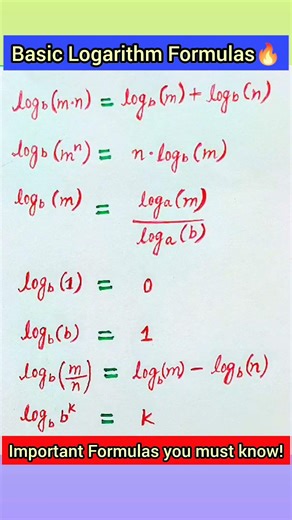 Basic Logarithm Formulas🔥
log_b (m·n) = log_b (m) + log_b (n)
log_b (mⁿ) = n · log_b (m)
log_b (m) = log_a (m) / log_a (b)
log_b (1) = 0
log_b (b) = 1
log_b (m/n) = log_b (m) − log_b (n)
log_b bᵏ = k
Important Formulas you must know!